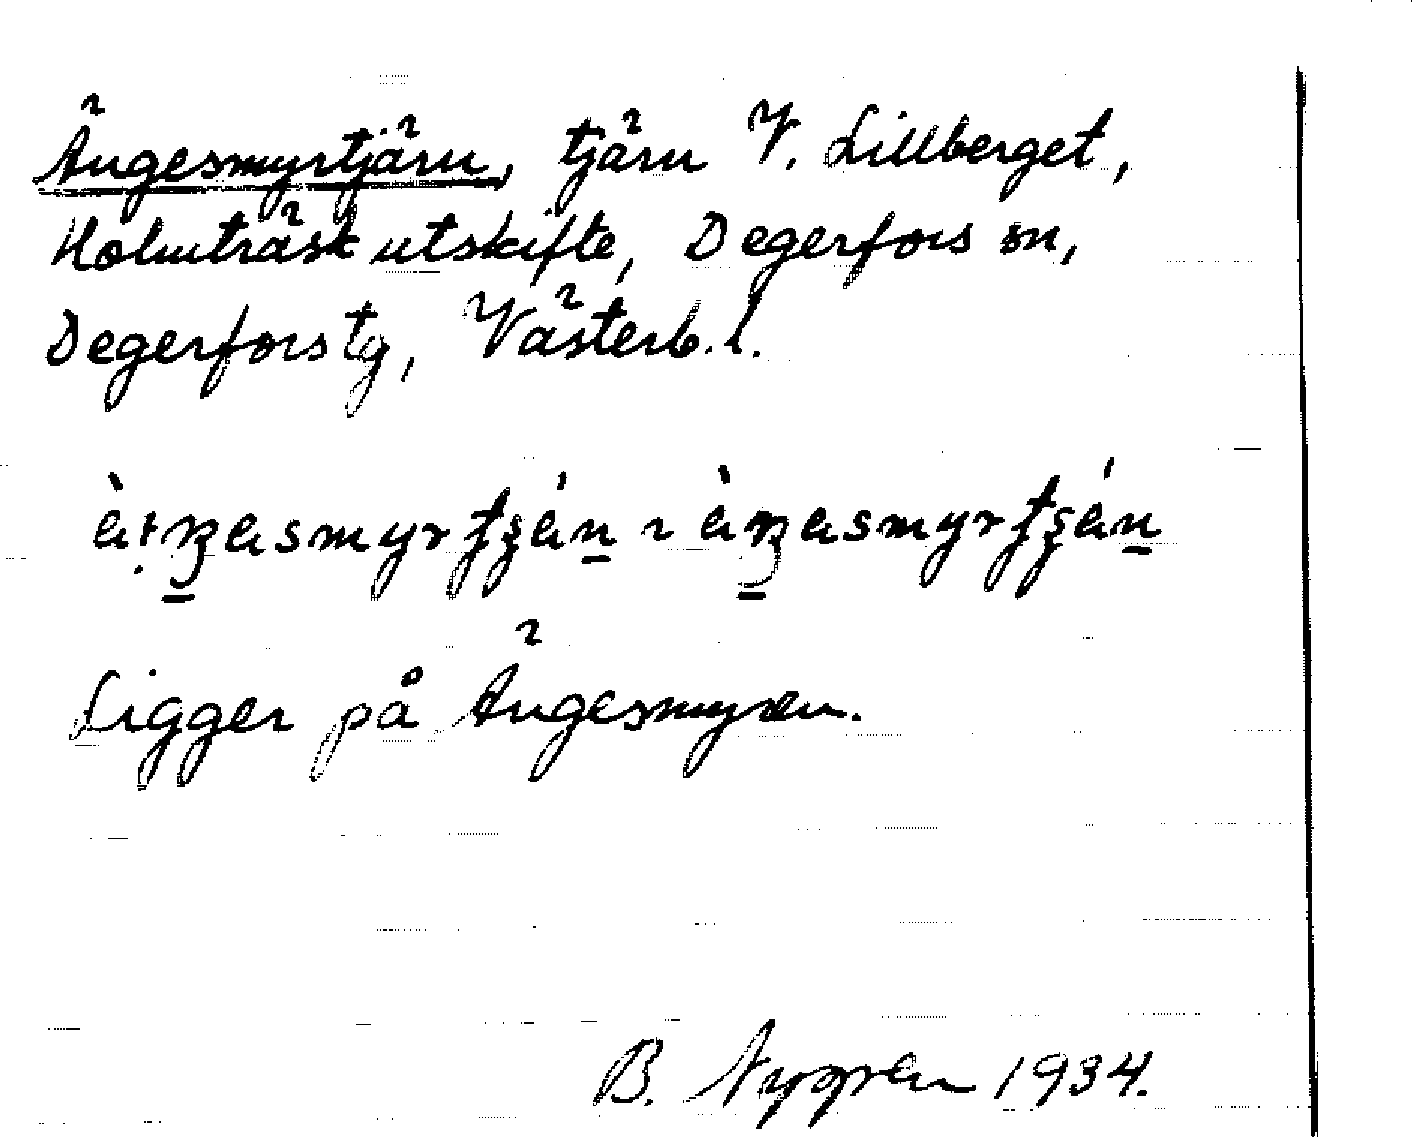 Ängesmyrtjärn, tjärn V. Lillberget,
Holmträsk utskifte, Degerfors sn,
Degerfors tg, Västerb. l.
Ligger på Ängesmyren.
B. Nygren 1934.